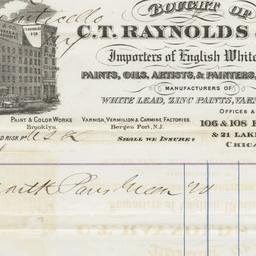 BOUGHT OF
C.T. RAYNOLDS &
Importers of English White
PAINTS, OILS, ARTISTS, & PAINTERS,
MANUFACTURERS OF
WHITE LEAD, ZINC PAINTS, VARN
OFFICES &
PAINT & COLOR WORKS
Brooklyn.
VARNISH, VERMILION & CARMINE FACTORIES.
Bergen Port, N.J.
106 & 108 F
& 21 LAKE
D RISK P
SHALL WE INSURE?
CHICA
Paris Green